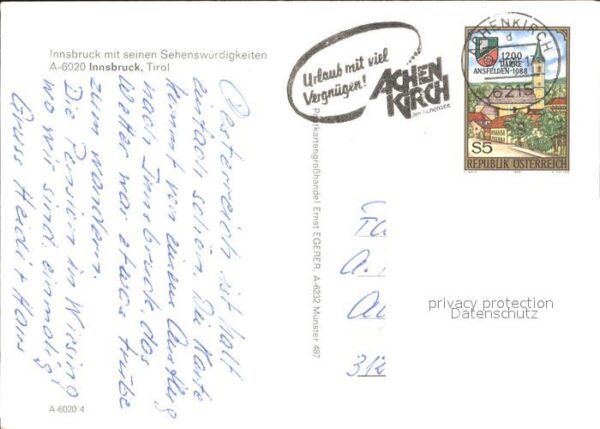 Innsbruck mit seinen Sehenswürdigkeiten
A-6020 Innsbruck, Tirol
Oesterreich ist halt
einfach schön. Die Karte
kommt von einem Ausflug
nach Innsbruck, das
Wetter war etwas trübe
zum wandern.
Die Pension in Wiesing
wo wir sind einmalig!
Gruss Heidi + Hans
A-6020/4
Postkartengroßhandel Ernst EGERER, A-6232 Münster 497
Urlaub mit viel
Vergnügen!
ACHEN
KIRCH
am Achensee
ACHENKIRCH
d
6215
1200
JAHRE
ANSFELDEN·1988
S5
REPUBLIK ÖSTERREICH
A.
312
privacy protection
Datenschutz